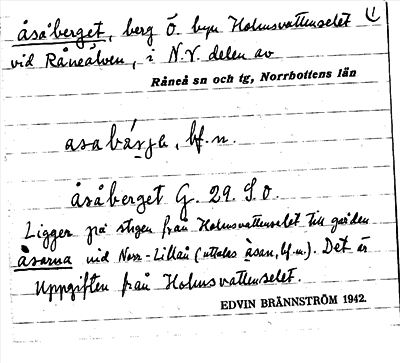 åsåberget, berg Ö. byn Holmsvattenselet
1
vid Råneälven, i N.V. delen av
Råneå sn och tg, Norrbottens län
asabárja, bf. n.
åsåberget G. 29. S.O.
Ligger på stigen från Holmsvattenselet till gården
åsarna vid Norr-Lillån (uttalas àsan, bf. n.). Det är
Uppgiften från Holmsvattenselet.
EDVIN BRÄNNSTRÖM 1942.